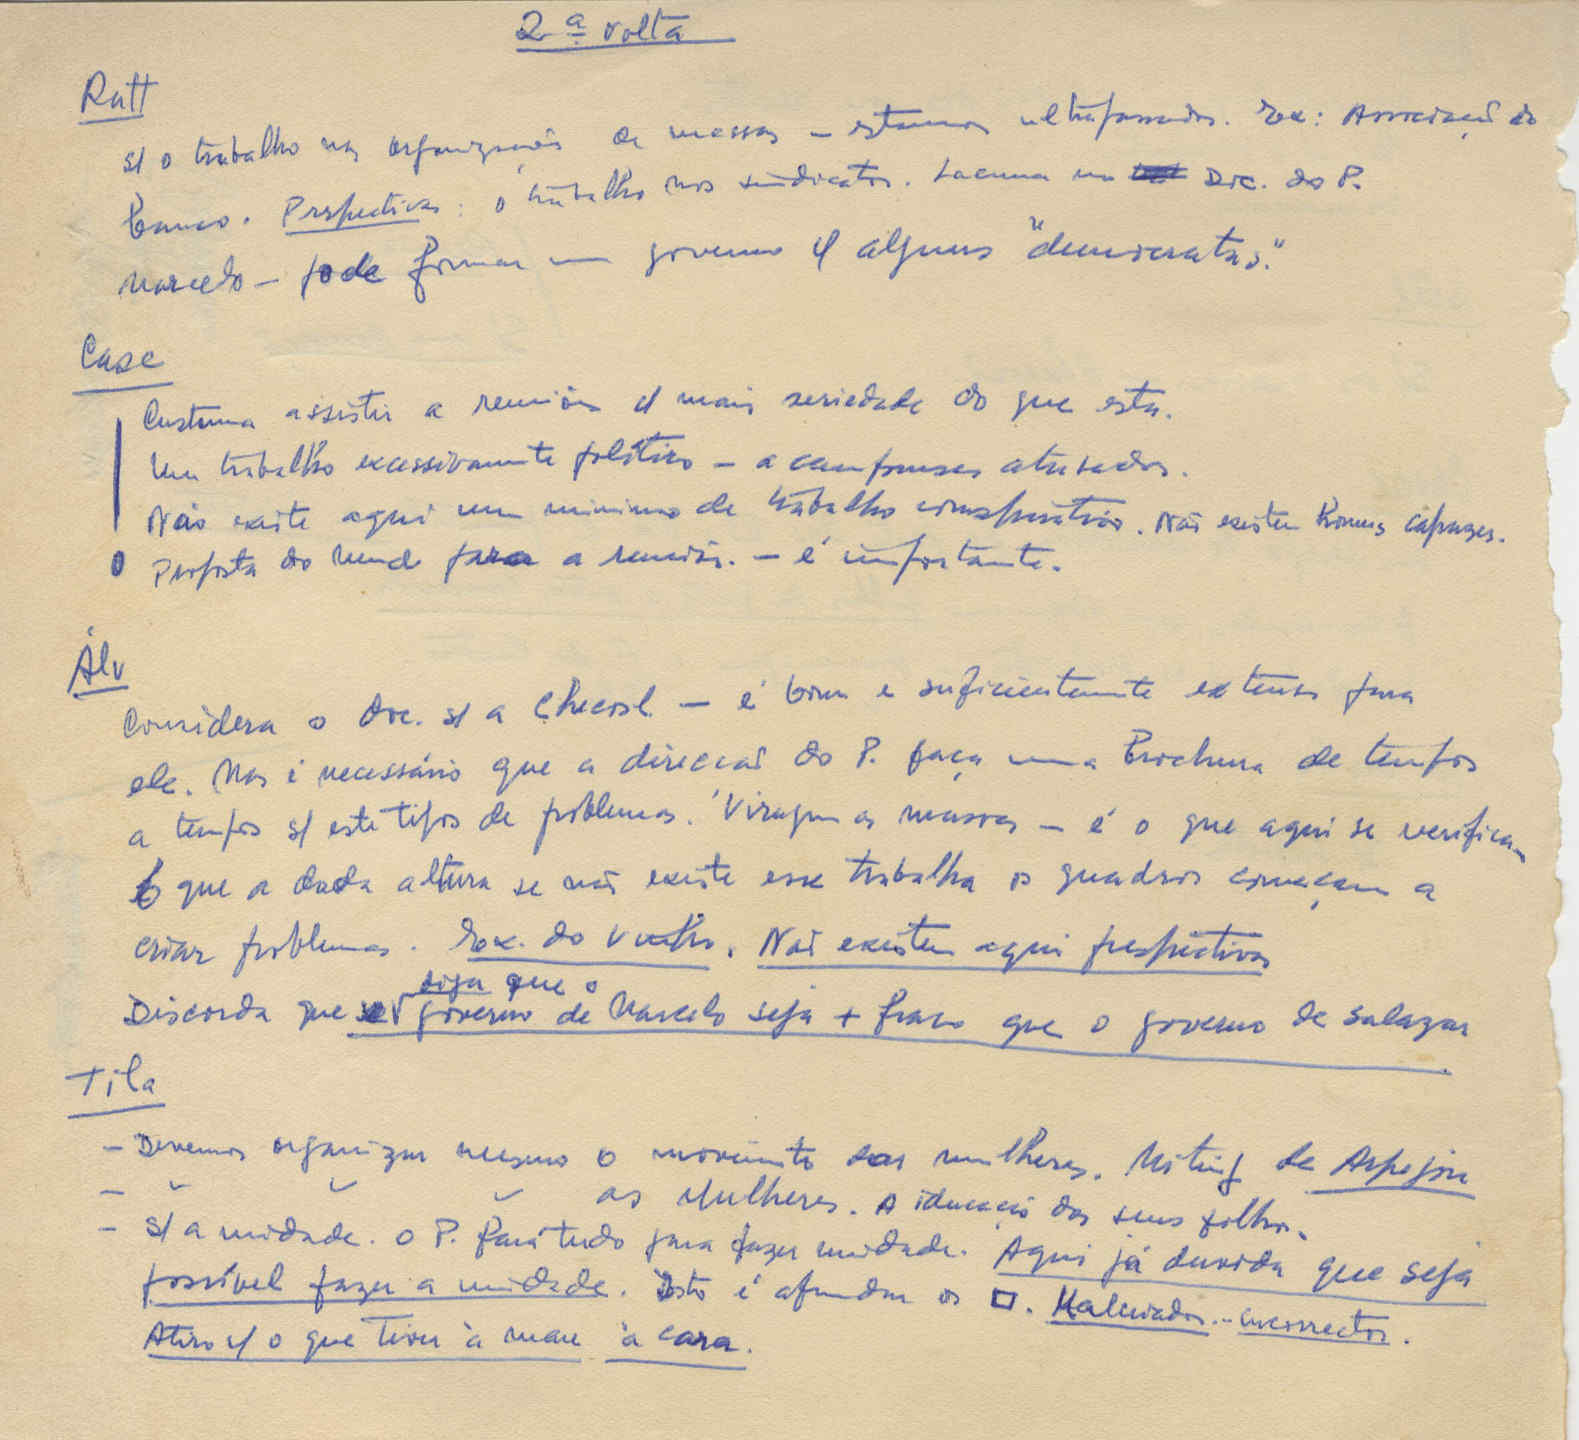 2ª volta
Ratt
s/ o trabalho nas organizações de massas – estamos ultrapassados. Ex: Associação do
banco. Perspectivas: o trabalho nos sindicatos. Lacuna no Doc. do P.
Marcelo – pode formar um governo c/ alguns "democratas".
Case
Costuma assistir a reuniões c/ mais seriedade do que esta.
Um trabalho excessivamente político – a camponeses atrasados.
Não existe aqui um mínimo de trabalho conspirativo. Não existem homens capazes.
Proposta do para a reunião. – é importante.
Álv
Considera o doc. s/ a Checosl. – é bom e suficientemente extenso para
ele. Mas é necessário que a direcção do P. faça uma brochura de tempos
a tempos s/ este tipos de problemas. Viragem as massas – é o que aqui se verifica
que a dada altura se não existe esse trabalho os quadros começam a
criar problemas. Ex. do . Não existem aqui perspectivas
diga que o
Discorda que se governo de Marcelo seja + fraco que o governo de Salazar
Tila
– Devemos organizar mesmo o movimento das mulheres. Miting de
– as Mulheres. A educação dos seus filhos.
– s/ a unidade. O P. fará tudo para fazer unidade. Aqui já duvida que seja
possível fazer a unidade. Isto é afundar os □. Malcriados – incorrectos.
Atiro c/ o que tiver à mão à cara.